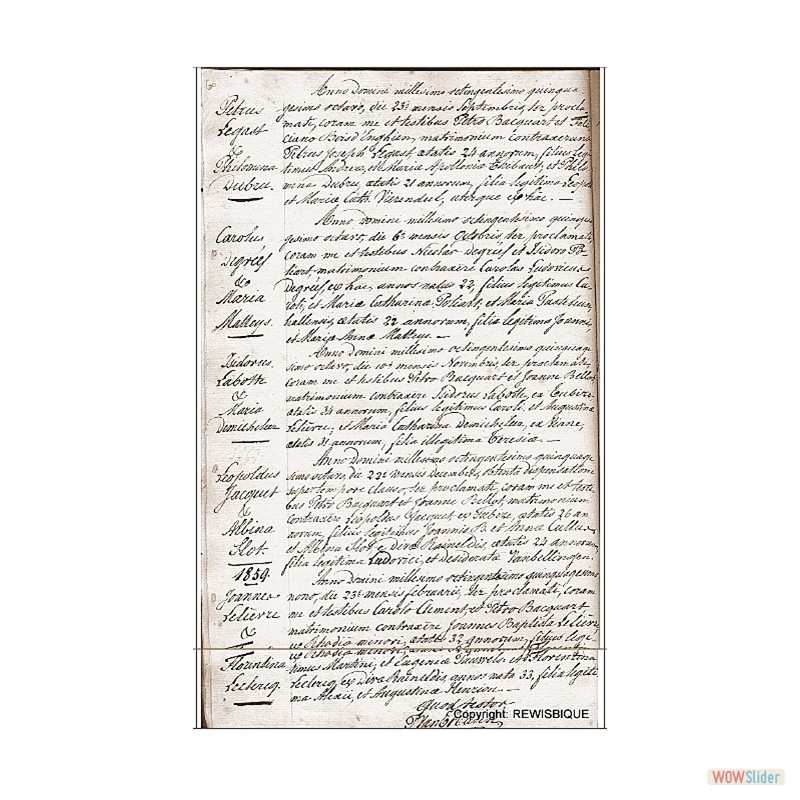 Petrus
Legast
&
Philomena
Dubru.
Anno Domini millesimo octingentesimo quinqua
gesimo octavo, die 23ª mensis Septembris, ter procla
mati, coram me et testibus Petro Bacquart et Feli
ciano Boisd'Enghien, matrimonium contraxerunt
Petrus Joseph Legast, ætatis 24 annorum, filius legi
timus Andreæ, et Maria Apollonia Thibaut, et Philo
mena Dubru, ætatis 21 annorum, filia legitima Leopol
et Maria Cath. Vierendeel, uterque ex hac. —
Carolus
Degreef
&
Maria
Matteys.
Anno Domini millesimo octingentesimo quinqua
gesimo octavo, die 6ª mensis Octobris, ter proclamati,
coram me et testibus Nicolao Degréef et Isidoro
matrimonium contraxere Carolus Ludovicus
Degréef, ex hac, annos natus 22, filius legitimus Ca
roli, et Mariæ Catharina et Maria
hallensis, ætatis 22 annorum, filia legitima Joannis,
et Maria Anna Matteys. —
Isidorus
Labotte
&
Maria
Demicheleer
Anno Domini millesimo octingentesimo quinquage
simo octavo, die 10ª mensis Novembris, ter proclamati,
coram me et testibus Petro Bacquart et Joanne Bellot
matrimonium contraxere Isidorus Labotte, ex Tubize
ætatis 34 annorum, filius legitimus Caroli, et Augustina
Lelièvre; et Maria Catharina Demicheleer, ex
ætatis 31 annorum, filia illegitima Teresiæ. —
Leopoldus
Jacquet
&
Albina
Slot.
Anno Domini millesimo octingentesimo quinquage
simo octavo, die 22ª mensis Decembris, obtenta dispensatione
super tempore clauso, ter proclamati, coram me et testi
bus Petro Bacquart et Joanne Bellot, matrimonium
contraxere Leopoldus Jacquet, ex Tubize, ætatis 26 an
norum, filius legitimus Joannis B. et Anna
et Albina Slot e Diva Raineldis, ætatis 24 annorum
filia legitima Ludovici, et Desiderata Vanbellingen.
1859.
Joannes
Lelièvre
&
Florentina
Leclercq.
Anno Domini millesimo octingentesimo quinquagesimo
nono, die 23ª mensis februarii, ter proclamati, coram
me et testibus Carolo Clement, et Petro Bacquart
matrimonium contraxere Joannes Baptista Lelièvre
ex Rhodio minori, ætatis 32 annorum, filius legi
timus Martini, et Eugenia Pauwels et Florentina
Leclercq, ex Diva Raineldis, annos nata 33, filia legiti
ma Alexii, et Augustina Henrion. —
Quod testor
Copyright: REWISBIQUE
WOWSlider